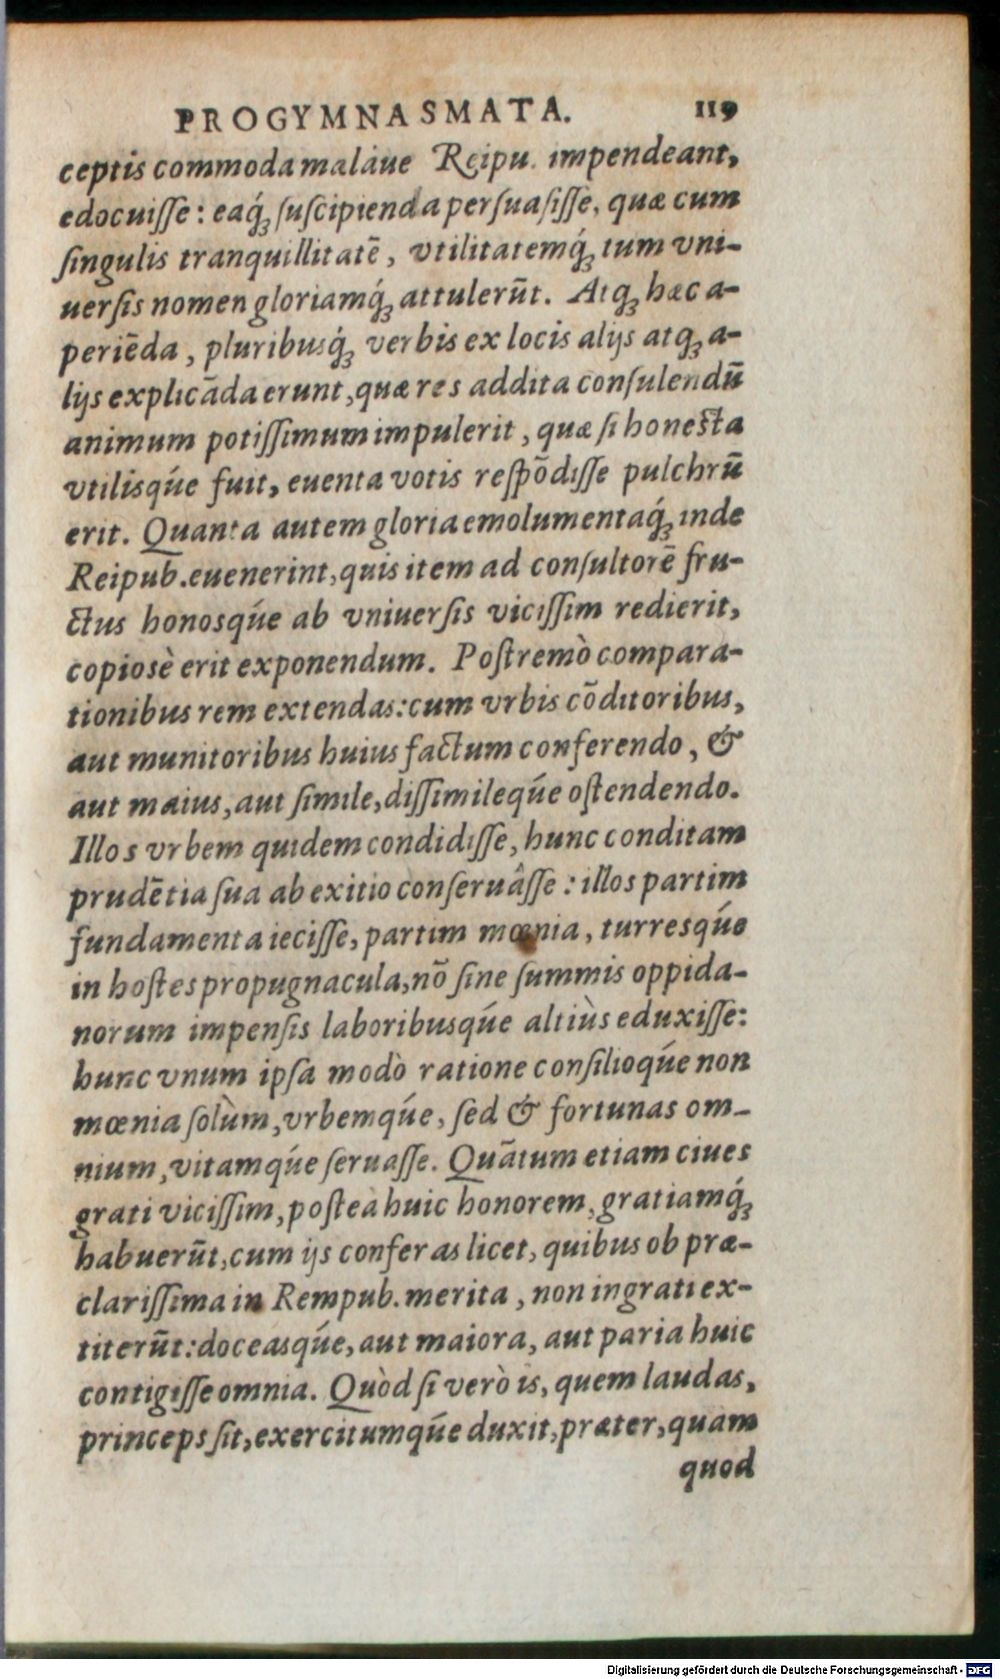 PROGYMNASMATA. 119
ceptis commoda malàue Reipu. impendeant,
edocuiſſe: eaq́ꝫ ſuſcipienda perſuaſiſſe, quæ cum
ſingulis tranquillitatē, vtilitatemq́ꝫ tum vni-
uerſis nomen gloriamq́ꝫ attulerūt. Atqꝫ hæc a-
periēda, pluribusq́ꝫ verbis ex locis alijs atqꝫ a-
lijs explicāda erunt, quæ res addita conſulendū
animum potiſſimum impulerit, quæ ſi honeſta
vtilisq́ue fuit, euenta votis reſpōdiſſe pulchrū
erit. Quanta autem gloria emolumentaq́ꝫ inde
Reipub. euenerint, quis item ad conſultorē fru-
ctus honosq́ue ab vniuerſis viciſſim redierit,
copiosè erit exponendum. Poſtremò compara-
tionibus rem extendas: cum vrbis cōditoribus,
aut munitoribus huius factum conferendo, &
aut maius, aut ſimile, diſſimileq́ue oſtendendo.
Illos vrbem quidem condidiſſe, hunc conditam
prudētia ſua ab exitio conſeruâſſe: illos partim
fundamenta ieciſſe, partim mœnia, turresq́ue
in hoſtes propugnacula, nō ſine ſummis oppida-
norum impenſis laboribusq́ue altiùs eduxiſſe:
hunc vnum ipſa modò ratione conſilioq́ue non
mœnia ſolùm, vrbemq́ue, ſed & fortunas om-
nium, vitamq́ue ſeruaſſe. Quātum etiam ciues
grati viciſſim, poſteà huic honorem, gratiamq́ꝫ
habuerūt, cum ijs conferas licet, quibus ob præ-
clariſſima in Rempub. merita, non ingrati ex-
titerūt: doceasq́ue, aut maiora, aut paria huic
contigiſſe omnia. Quòd ſi verò is, quem laudas,
princeps ſit, exercitumq́ue duxit, præter, quam
quod
Digitalisierung gefördert durch die Deutsche Forschungsgemeinschaft - DFG